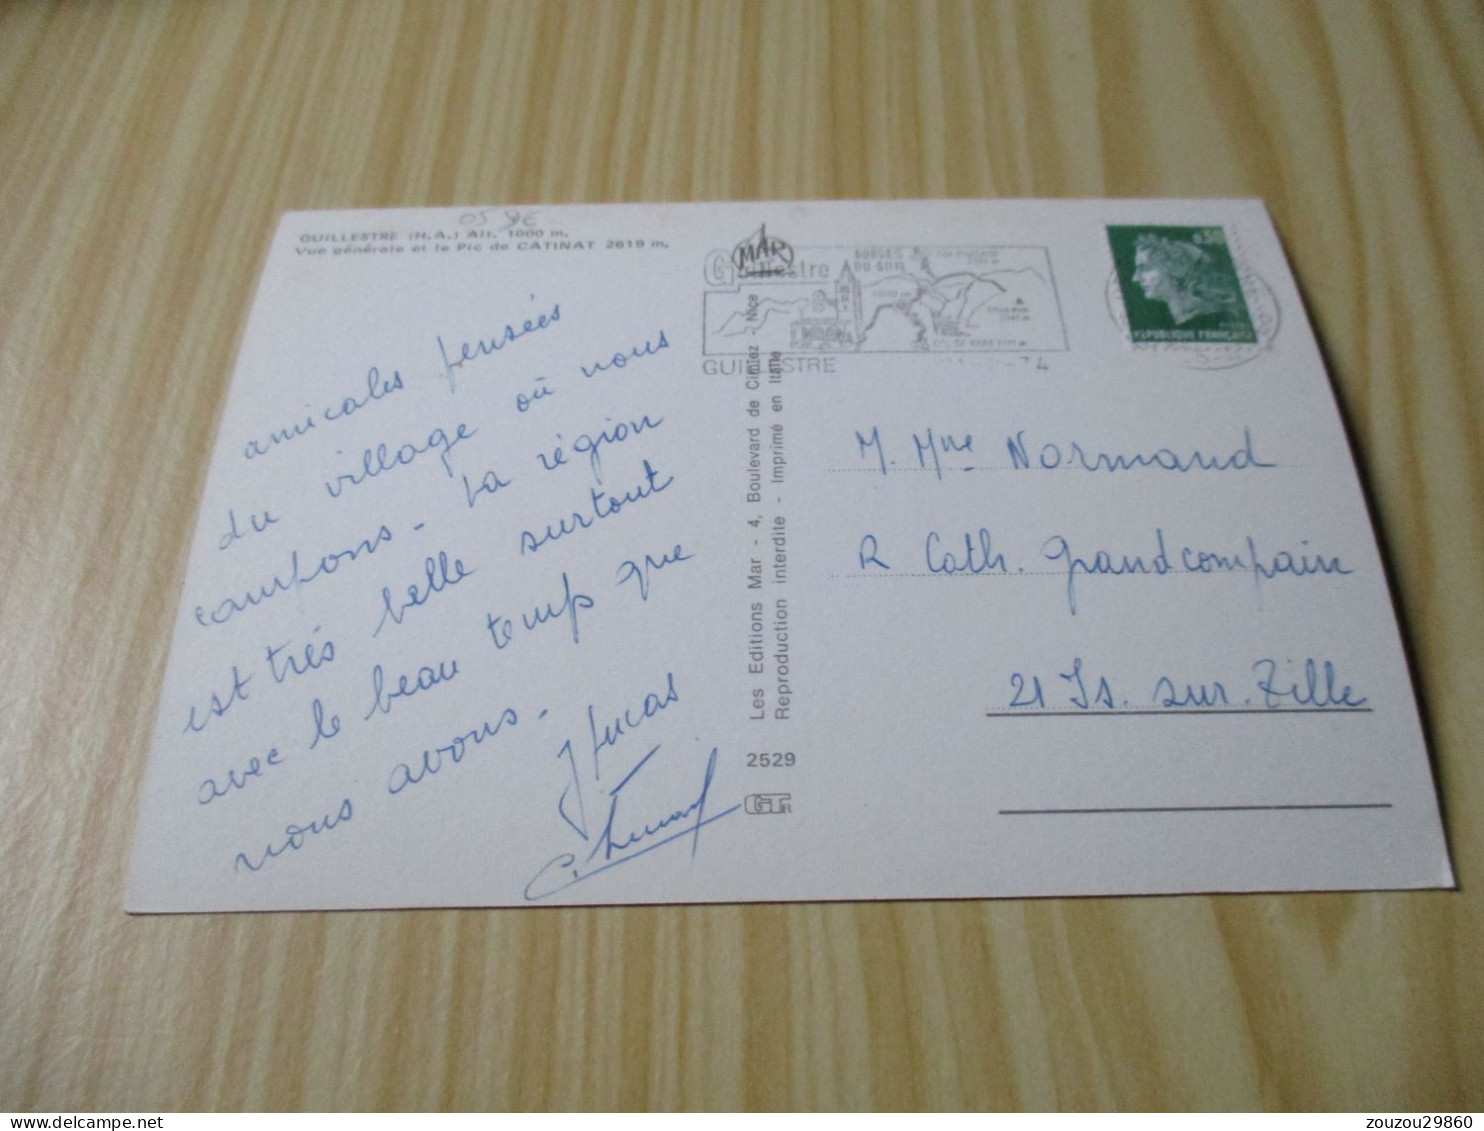 05
GUILLESTRE (H.A.) Alt. 1000 m.
Vue générale et le Pic de CATINAT 2619 m.
MAR
Guillestre
GORGES
DU GUIL
GUILLESTRE
74
0,30
REPUBLIQUE FRANÇAISE
amicales pensées
du village où nous
campons - La région
est très belle surtout
avec le beau temps que
nous avons.
Les Editions Mar - 4, Boulevard de Cimiez - Nice
Reproduction interdite - Imprimé en Italie
2529
GTR
M. Mme Normand
R Cath. Grandcompain
21 Is. sur. Tille
zouzou29860